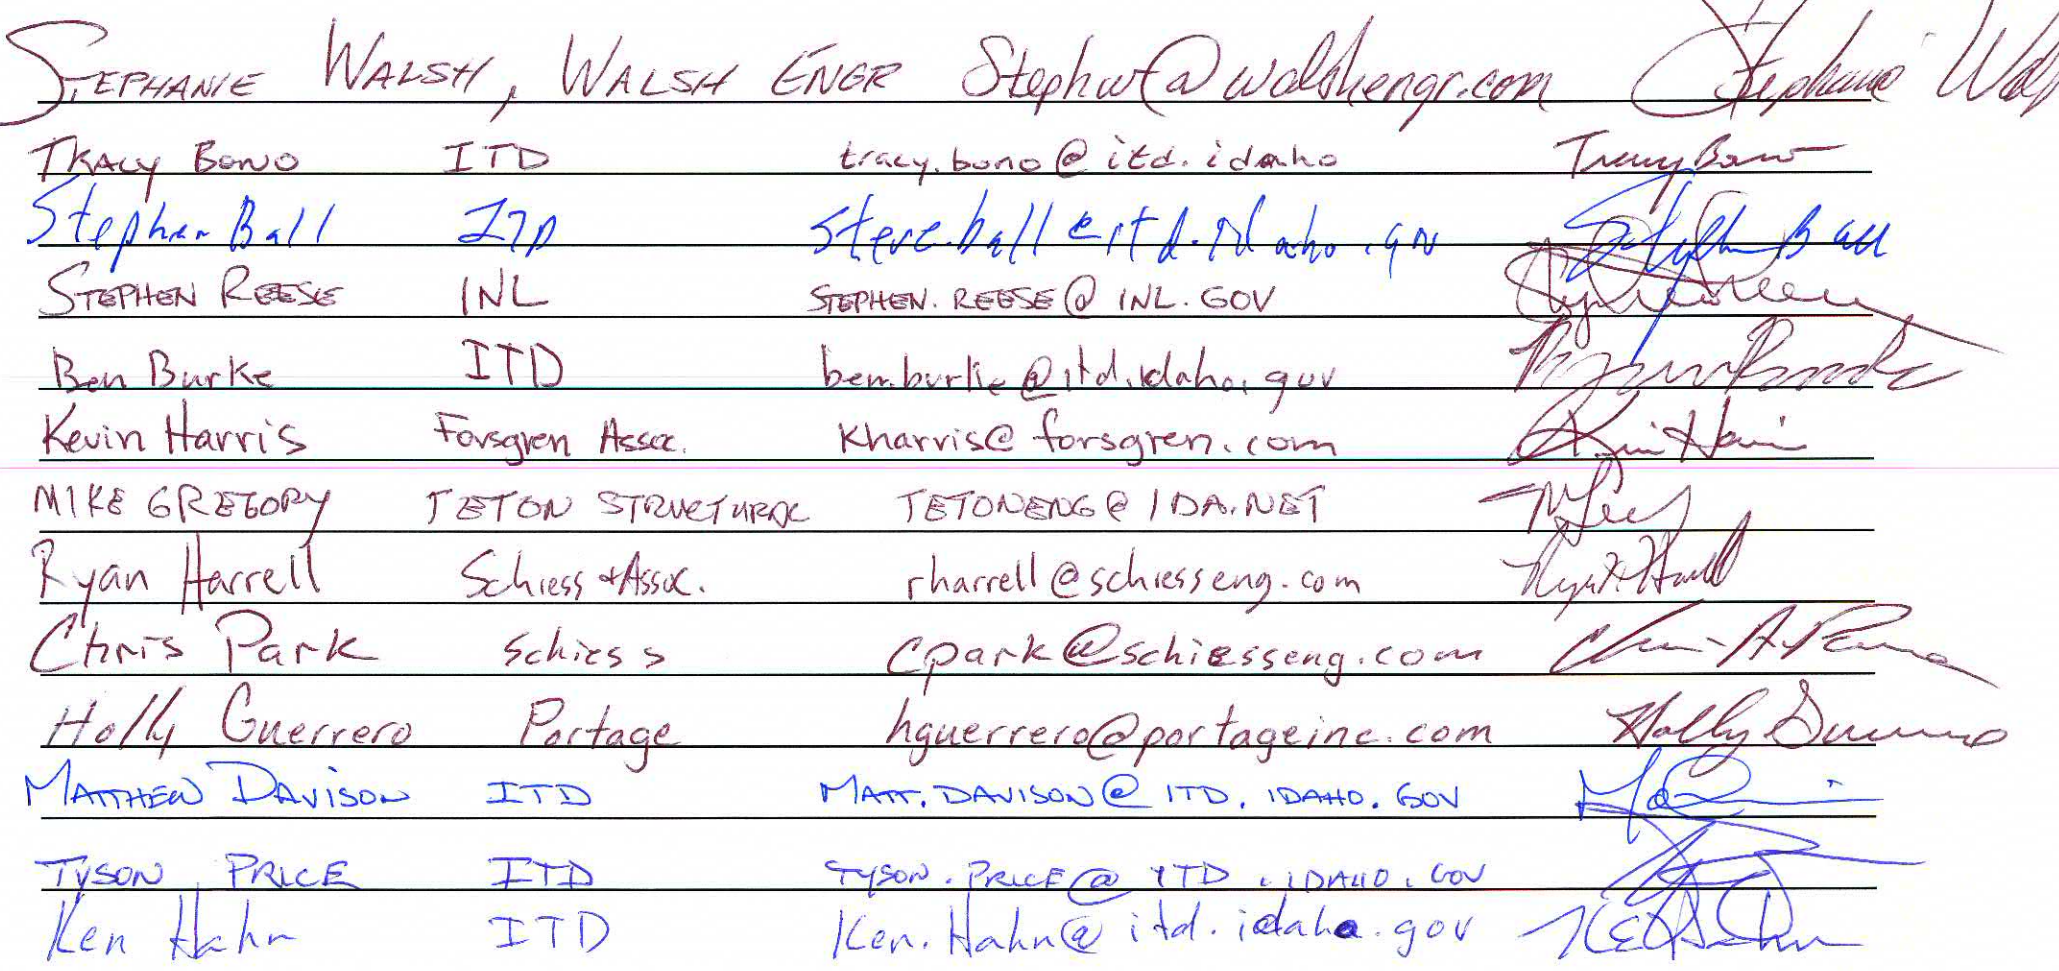 STEPHANIE WALSH, WALSH ENGR Stephw@walshengr.com Stephanie Wals
TRACY BONO ITD tracy.bono@itd.idaho Tracy Bono
Stephen Ball ITD Steve.ball@itd.idaho.gov Stephen Ball
STEPHEN REESE INL STEPHEN.REESE@INL.GOV
Ben Burke ITD ben.burke@itd.idaho.gov
Kevin Harris Forsgren Assoc. kharris@forsgren.com Kevin Harris
MIKE GREGORY TETON STRUCTURAL TETONENG@IDA.NET
Ryan Harrell Schiess + Assoc. rharrell@schiesseng.com
Chris Park Schiess cpark@schiesseng.com
Holly Guerrero Portage hguerrero@portageinc.com Holly Guerrero
MATTHEW DAVISON ITD MATT.DAVISON@ITD.IDAHO.GOV
TYSON PRICE ITD TYSON.PRICE@ITD.IDAHO.GOV
Ken Hahn ITD Ken.Hahn@itd.idaho.gov